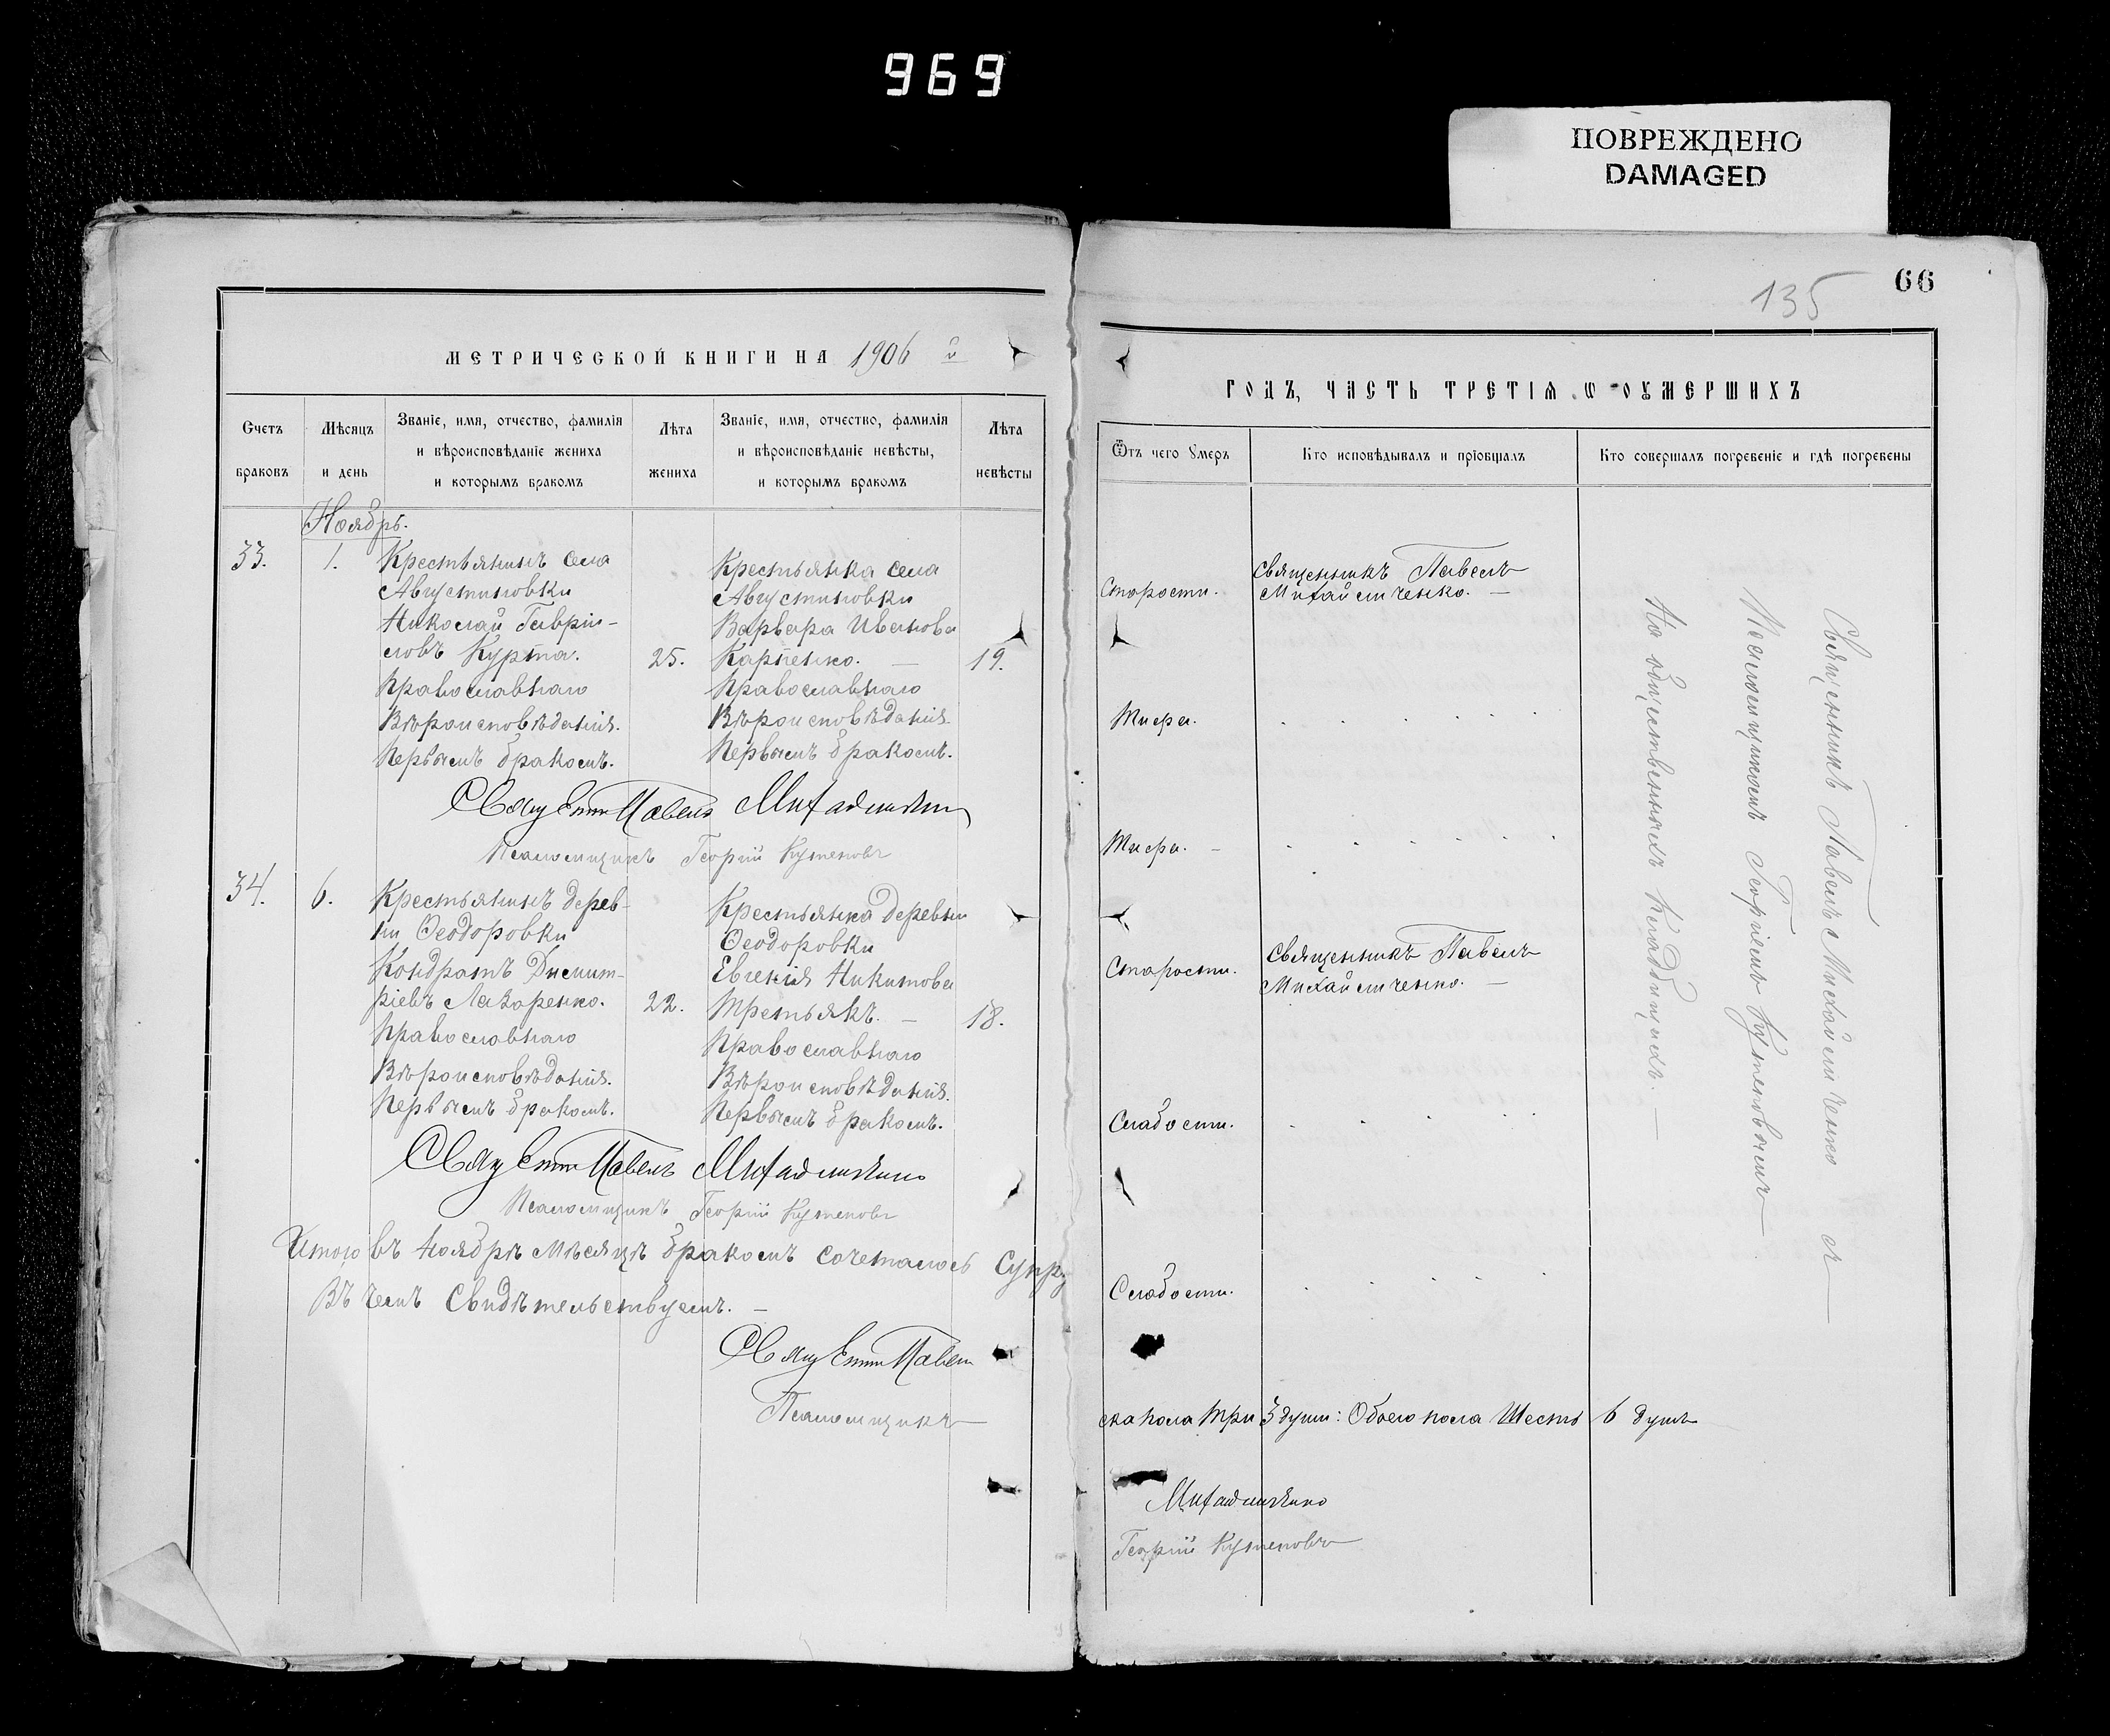 969
ПОВРЕЖДЕНО
DAMAGED
МЕТРИЧЕСКОЙ КНИГИ НА 1906 й
Счетъ браковъ
Мѣсяцъ и день
Званіе, имя, отчество, фамилія и вѣроисповѣданіе жениха и которымъ бракомъ
Лѣта жениха
Званіе, имя, отчество, фамилія и вѣроисповѣданіе невѣсты, и которымъ бракомъ
Лѣта невѣсты
Ноябрь.
33.
1.
Крестьянинъ села
Августиновки
Николай Гаврии-
ловъ Курта.
Православнаго
Вѣроисповѣданія.
Первымъ бракомъ.
25.
Крестьянка села
Августиновки
Варвара Иванова
Карпенко. —
Православнаго
Вѣроисповѣданія.
Первымъ бракомъ.
19.
Священникъ Павелъ Михайличенко
Псаломщикъ Георгій
34.
6.
Крестьянинъ дерев-
ни Ѳеодоровки
Кондратъ Димит-
ріевъ Лазоренко.
Православнаго
Вѣроисповѣданія.
Первымъ бракомъ.
22.
Крестьянка деревни
Ѳеодоровки
Евгенія Никитова
Третьякъ. —
Православнаго
Вѣроисповѣданія.
Первымъ бракомъ.
18.
Священникъ Павелъ Михайличенко
Псаломщикъ Георгій
Итого въ Ноябрѣ мѣсяцѣ бракомъ сочеталось Супру
Въ чемъ Свидѣтельствуемъ. —
Священникъ Павелъ
Псаломщикъ
66
135
ГОДЪ, ЧАСТЬ ТРЕТІЯ Ѡ ОУМЕРШИХЪ
Ѿтъ чего Умеръ
Кто исповѣдывалъ и пріобщалъ
Кто совершалъ погребеніе и гдѣ погребены
Старости.
Священникъ Павелъ
Михайличенко. —
Тифа.
Тифа. —
Старости.
Священникъ Павелъ
Михайличенко. —
Слабости.
Слабости.
Священникъ Павелъ Михайличенко съ
Псаломщикомъ Георгіемъ
На общественныхъ Кладбищахъ. —
ска пола Три 3 души: Обоего пола Шесть 6 душъ
Михайличенко
Георгій